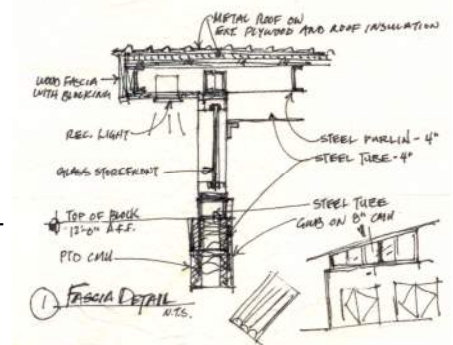 METAL ROOF ON
EXT. PLYWOOD AND ROOF INSULATION
WOOD FASCIA
WITH BLOCKING
REC. LIGHT
STEEL PURLIN - 4"
STEEL TUBE - 4"
GLASS STOREFRONT
STEEL TUBE
TOP OF BLOCK
12'-0" A.F.F.
ON 8" CMU
PTD CMU
1 FASCIA DETAIL
N.T.S.